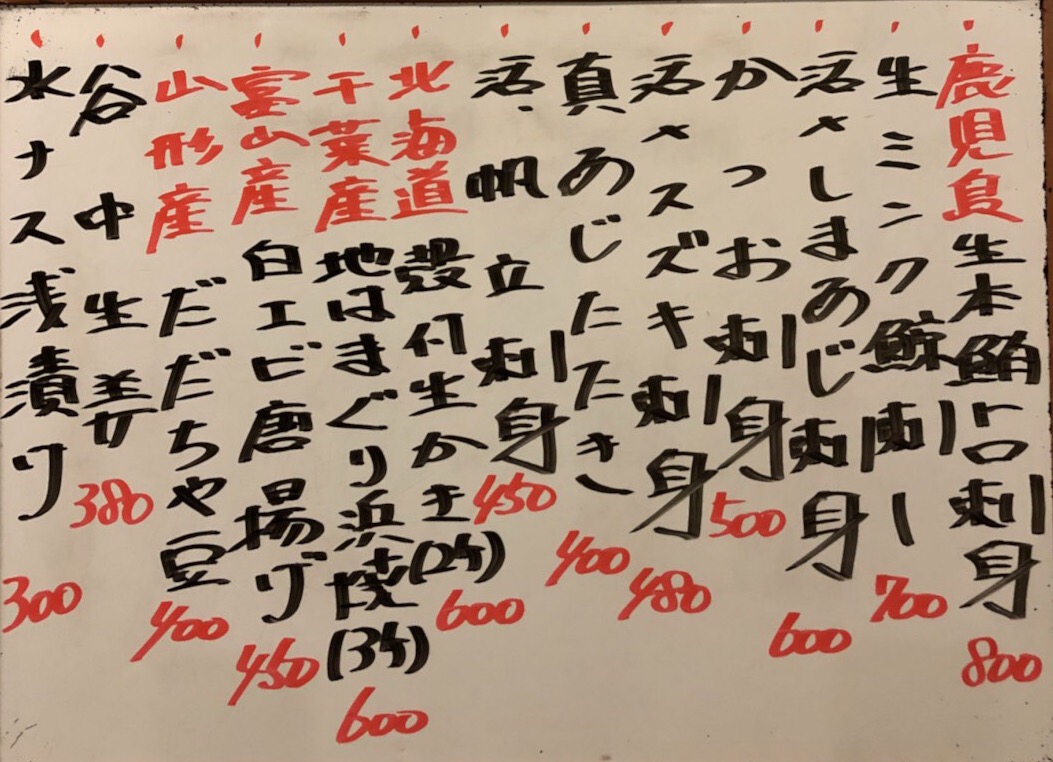 鹿児島生本鮪トロ刺身 800
生ミンク鯨刺し 700
活〆しまあじ刺身 600
かつお刺身 500
活〆スズキ刺身 480
真あじたたき 400
活、帆立刺身 450
北海道殻付生かき(2ケ) 600
千葉産地はまぐり浜焼(3ケ) 600
富山産白エビ唐揚げ 450
山形産だだちゃ豆 400
谷中生姜 380
水ナス浅漬け 300